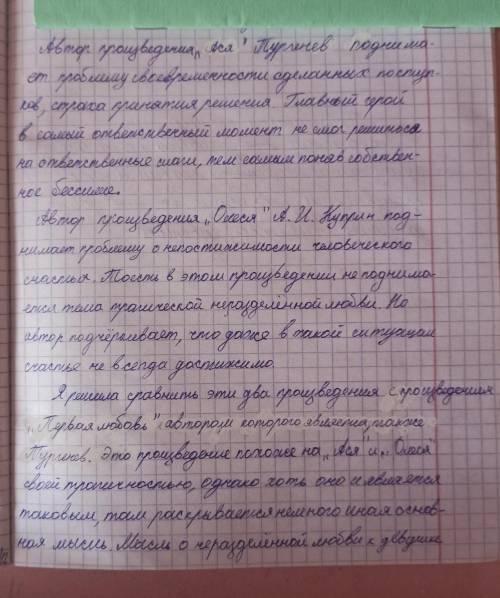 Автор произведения „Ася" Тургенев поднима-
ет проблему своевременности сделанных поступ-
ков, страха принятия решения. Главный герой
в самый ответственный момент не смог решиться
на ответственные шаги, тем самым поняв собствен-
ное бессилие.
Автор произведения „Олеся" А. И. Куприн под-
нимает проблему о непостижимости человеческого
счастья. То есть в этом произведении не поднима-
ется тема трагической неразделённой любви. Но
автор подчёркивает, что даже в такой ситуации
счастье не всегда достижимо.
Я решила сравнить эти два произведения с произведением
„Первая любовь", автором которого является также
Тургенев. Это произведение похоже на „Ася" и „Олеся"
своей трагичностью, однако хоть оно и является
таковым, там раскрывается немного иная основ-
ная мысль. Мысль о неразделённой любви к девушке